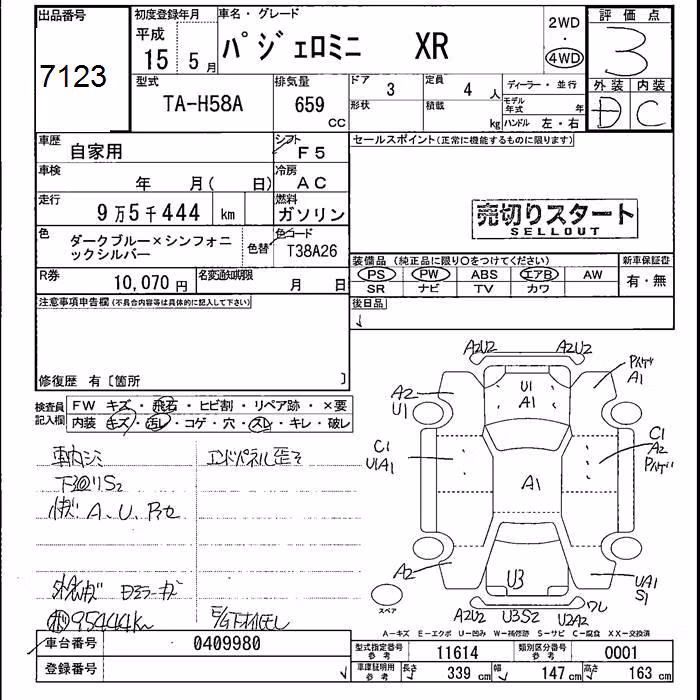 出品番号
7123
初度登録年月
平成
15 5 月
車名・グレード
パジェロミニ XR
2WD
・
4WD
評価点
3
外装 内装
D C
型式
TA-H58A
排気量
659
CC
ドア
3
定員
4 人
形状
積載
kg
ディーラー・並行
モデル年式 年
ハンドル 左・右
車歴
自家用
シフト
F5
セールスポイント(正常に機能するものに限ります)
車検
年 月( 日)
冷房
AC
走行
9万5千444 km
燃料
ガソリン
売切りスタート
SELLOUT
色
ダークブルー×シンフォニックシルバー
色替
色コード
T38A26
R券
10,070 円
名変通知期限
月 日
装備品 (純正品に限り○をつけてください)
PS PW ABS エアB AW
SR ナビ TV カワ
新車保証書
有・無
注意事項申告欄(不具合内容等は具体的に記入して下さい)
後日品
修復歴 有〔箇所 〕
検査員記入欄
FW キズ・飛石・ヒビ割・リペア跡・×要
内装 キズ・汚レ・コゲ・穴・スレ・キレ・破レ
車内シミ
エンドパネル歪ミ
下廻りS2
A、U、
95444km
A2U2 A2U2
A2
U1
U1
A1
A1
C1
U1A1
A1
C1
A2
A2
U3
UA1
S1
スペア
A2U2 U3S2 U2A2 ワレ
A=キズ E=エクボ U=凹み W=補修跡 S=サビ C=腐食 XX=交換済
車台番号
0409980
登録番号
型式指定番号
参考
11614
類別区分番号
参考
0001
車庫証明用
参考
長さ 339 cm 幅 147 cm 高さ 163 cm